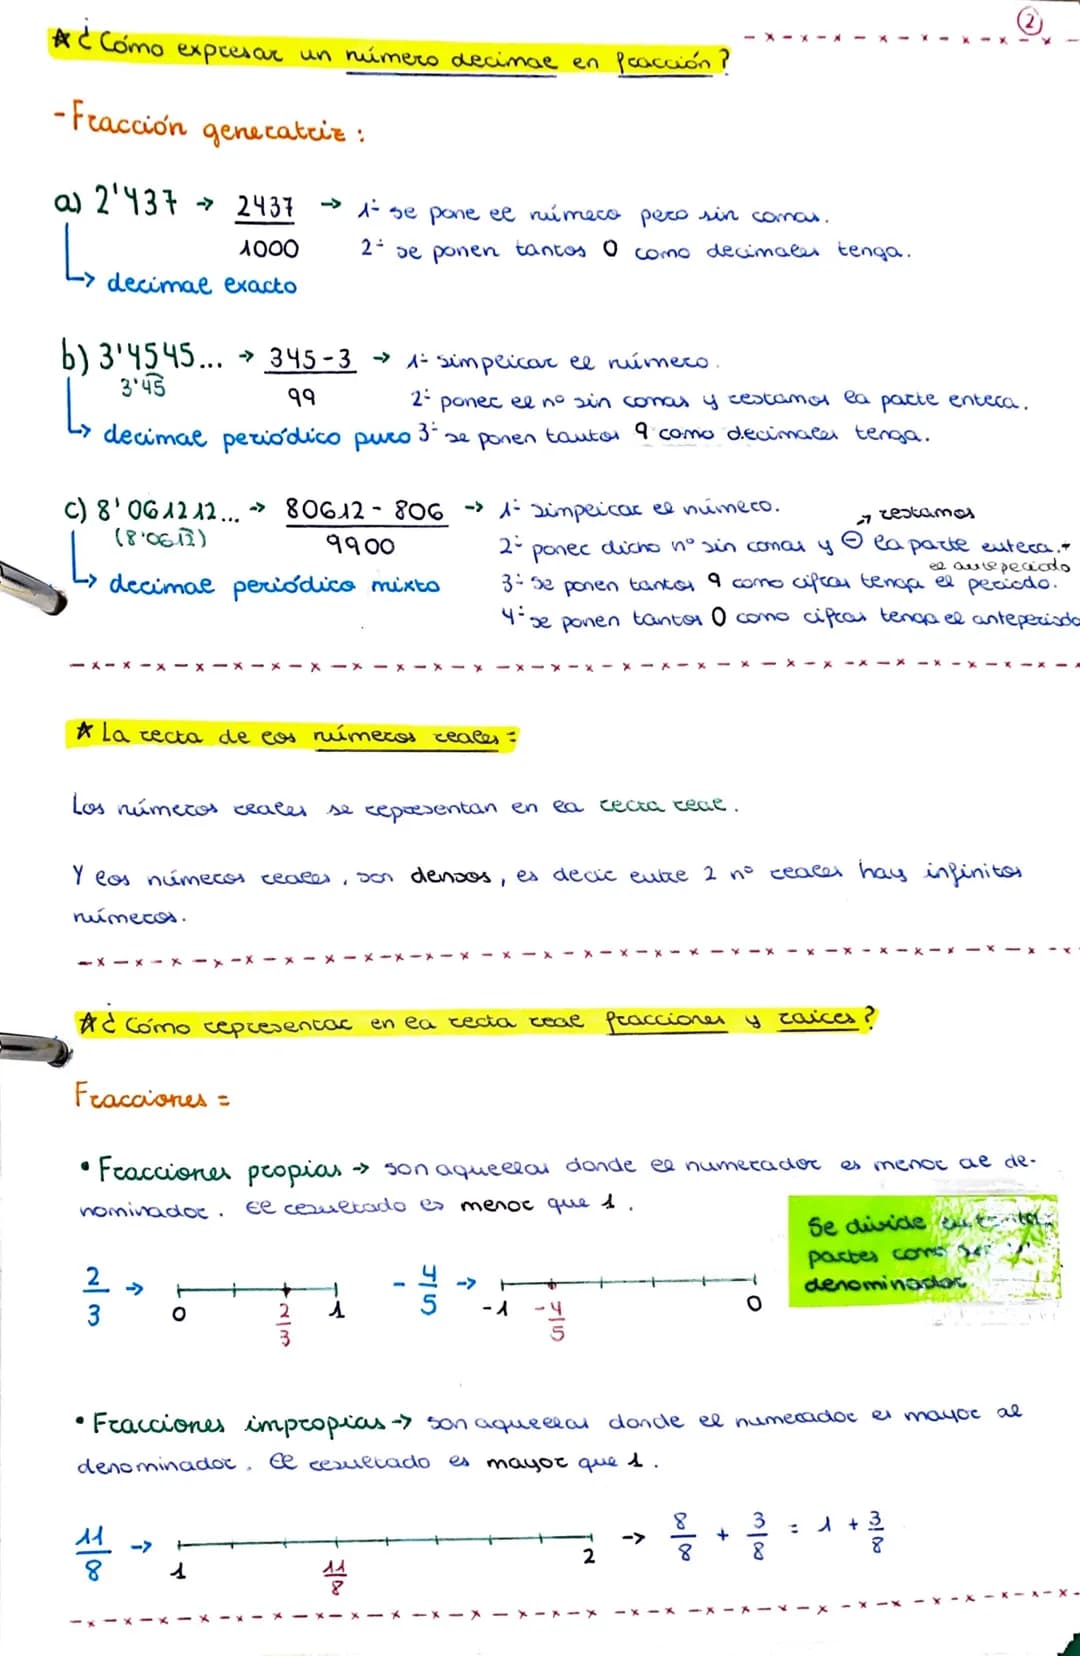 2
☆ ¿Cómo expresar un número decimal en fracción?
- Fracción generatriz:
a) 2'437 → 2437/1000 → 1º se pone el número pero sin comas.
2º se ponen tantos 0 como decimales tenga.
↳ decimal exacto
b) 3'4545... → 345-3/99 → 1º simplicar el número.
3'45
2º poner el nº sin comas y restamos la parte entera.
↳ decimal periódico puro 3º se ponen tantos 9 como decimales tenga.
c) 8'061212... → 80612 - 806/9900 → 1º simplicar el número.
(8'0612)
→ restamos
2º poner dicho nº sin comas y ⊖ la parte entera. +
el anteperiodo
↳ decimal periódico mixto 3º se ponen tantos 9 como cifras tenga el periodo.
4º se ponen tantos 0 como cifras tenga el anteperiodo
☆ La recta de los números reales =
Los números reales se representan en la recta real.
Y los números reales, son densos, es decir entre 2 nº reales hay infinitos
números.
☆ ¿Cómo representar en la recta real fracciones y raíces?
Fracciones =
• Fracciones propias → son aquellas donde el numerador es menor al de-
nominador. El resultado es menor que 1.
Se divide en tantas
partes como
denominador
2/3 → 0 2/3 1
- 4/5 → -1 -4/5 0
• Fracciones impropias → son aquellas donde el numerador es mayor al
denominador. El resultado es mayor que 1.
11/8 → 1 11/8 2 → 8/8 + 3/8 = 1 + 3/8